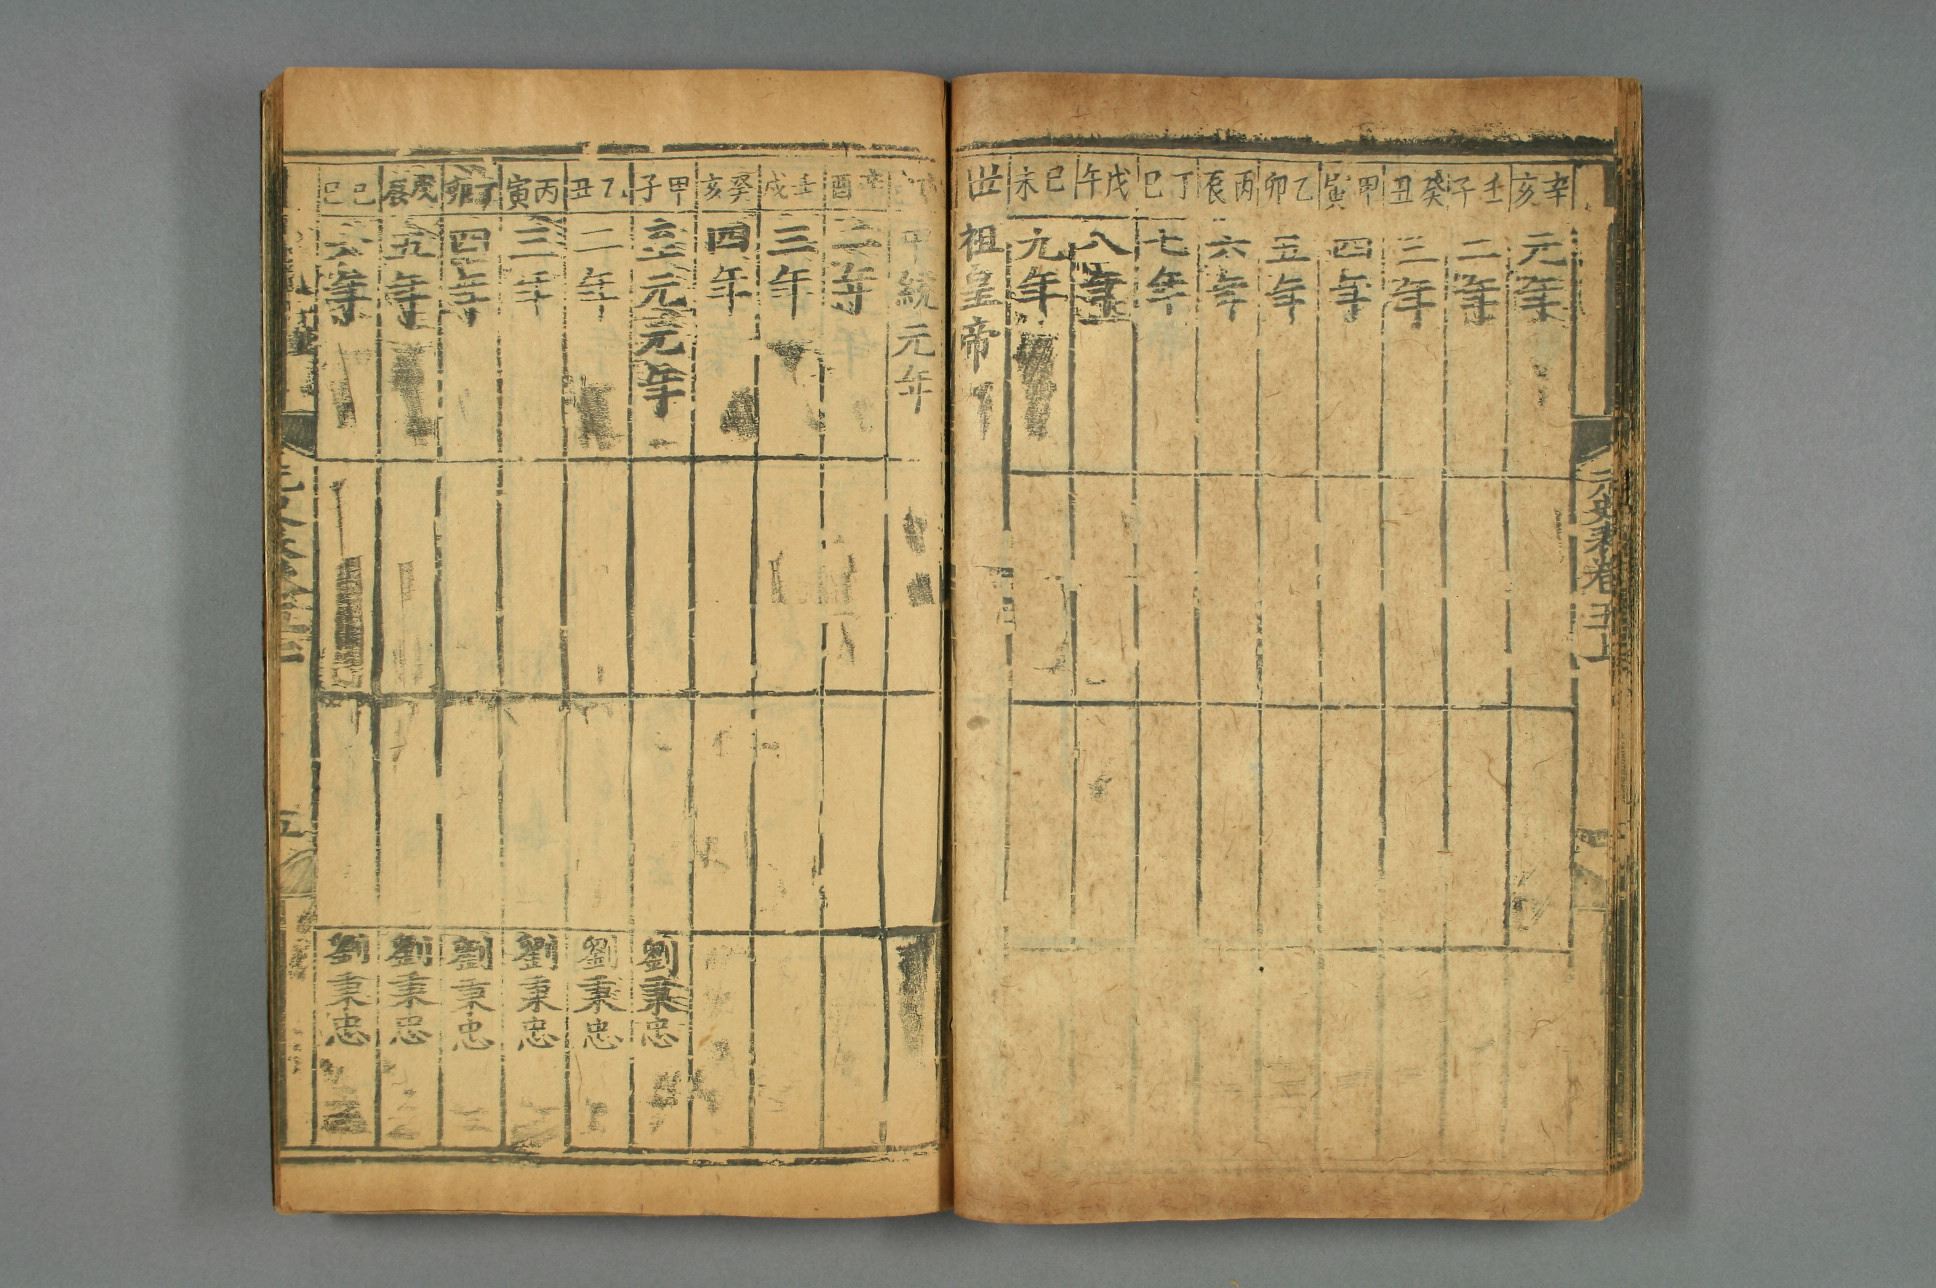 元史表卷五上
辛亥 元年
壬子 二年
癸丑 三年
甲寅 四年
乙卯 五年
丙辰 六年
丁巳 七年
戊午 八年
己未 九年
世祖皇帝
統元年
辛酉 二年
壬戌 三年
癸亥 四年
甲子 至元元年 劉秉忠
乙丑 二年 劉秉忠
丙寅 三年 劉秉忠
丁卯 四年 劉秉忠
戊辰 五年 劉秉忠
己巳 六年 劉秉忠